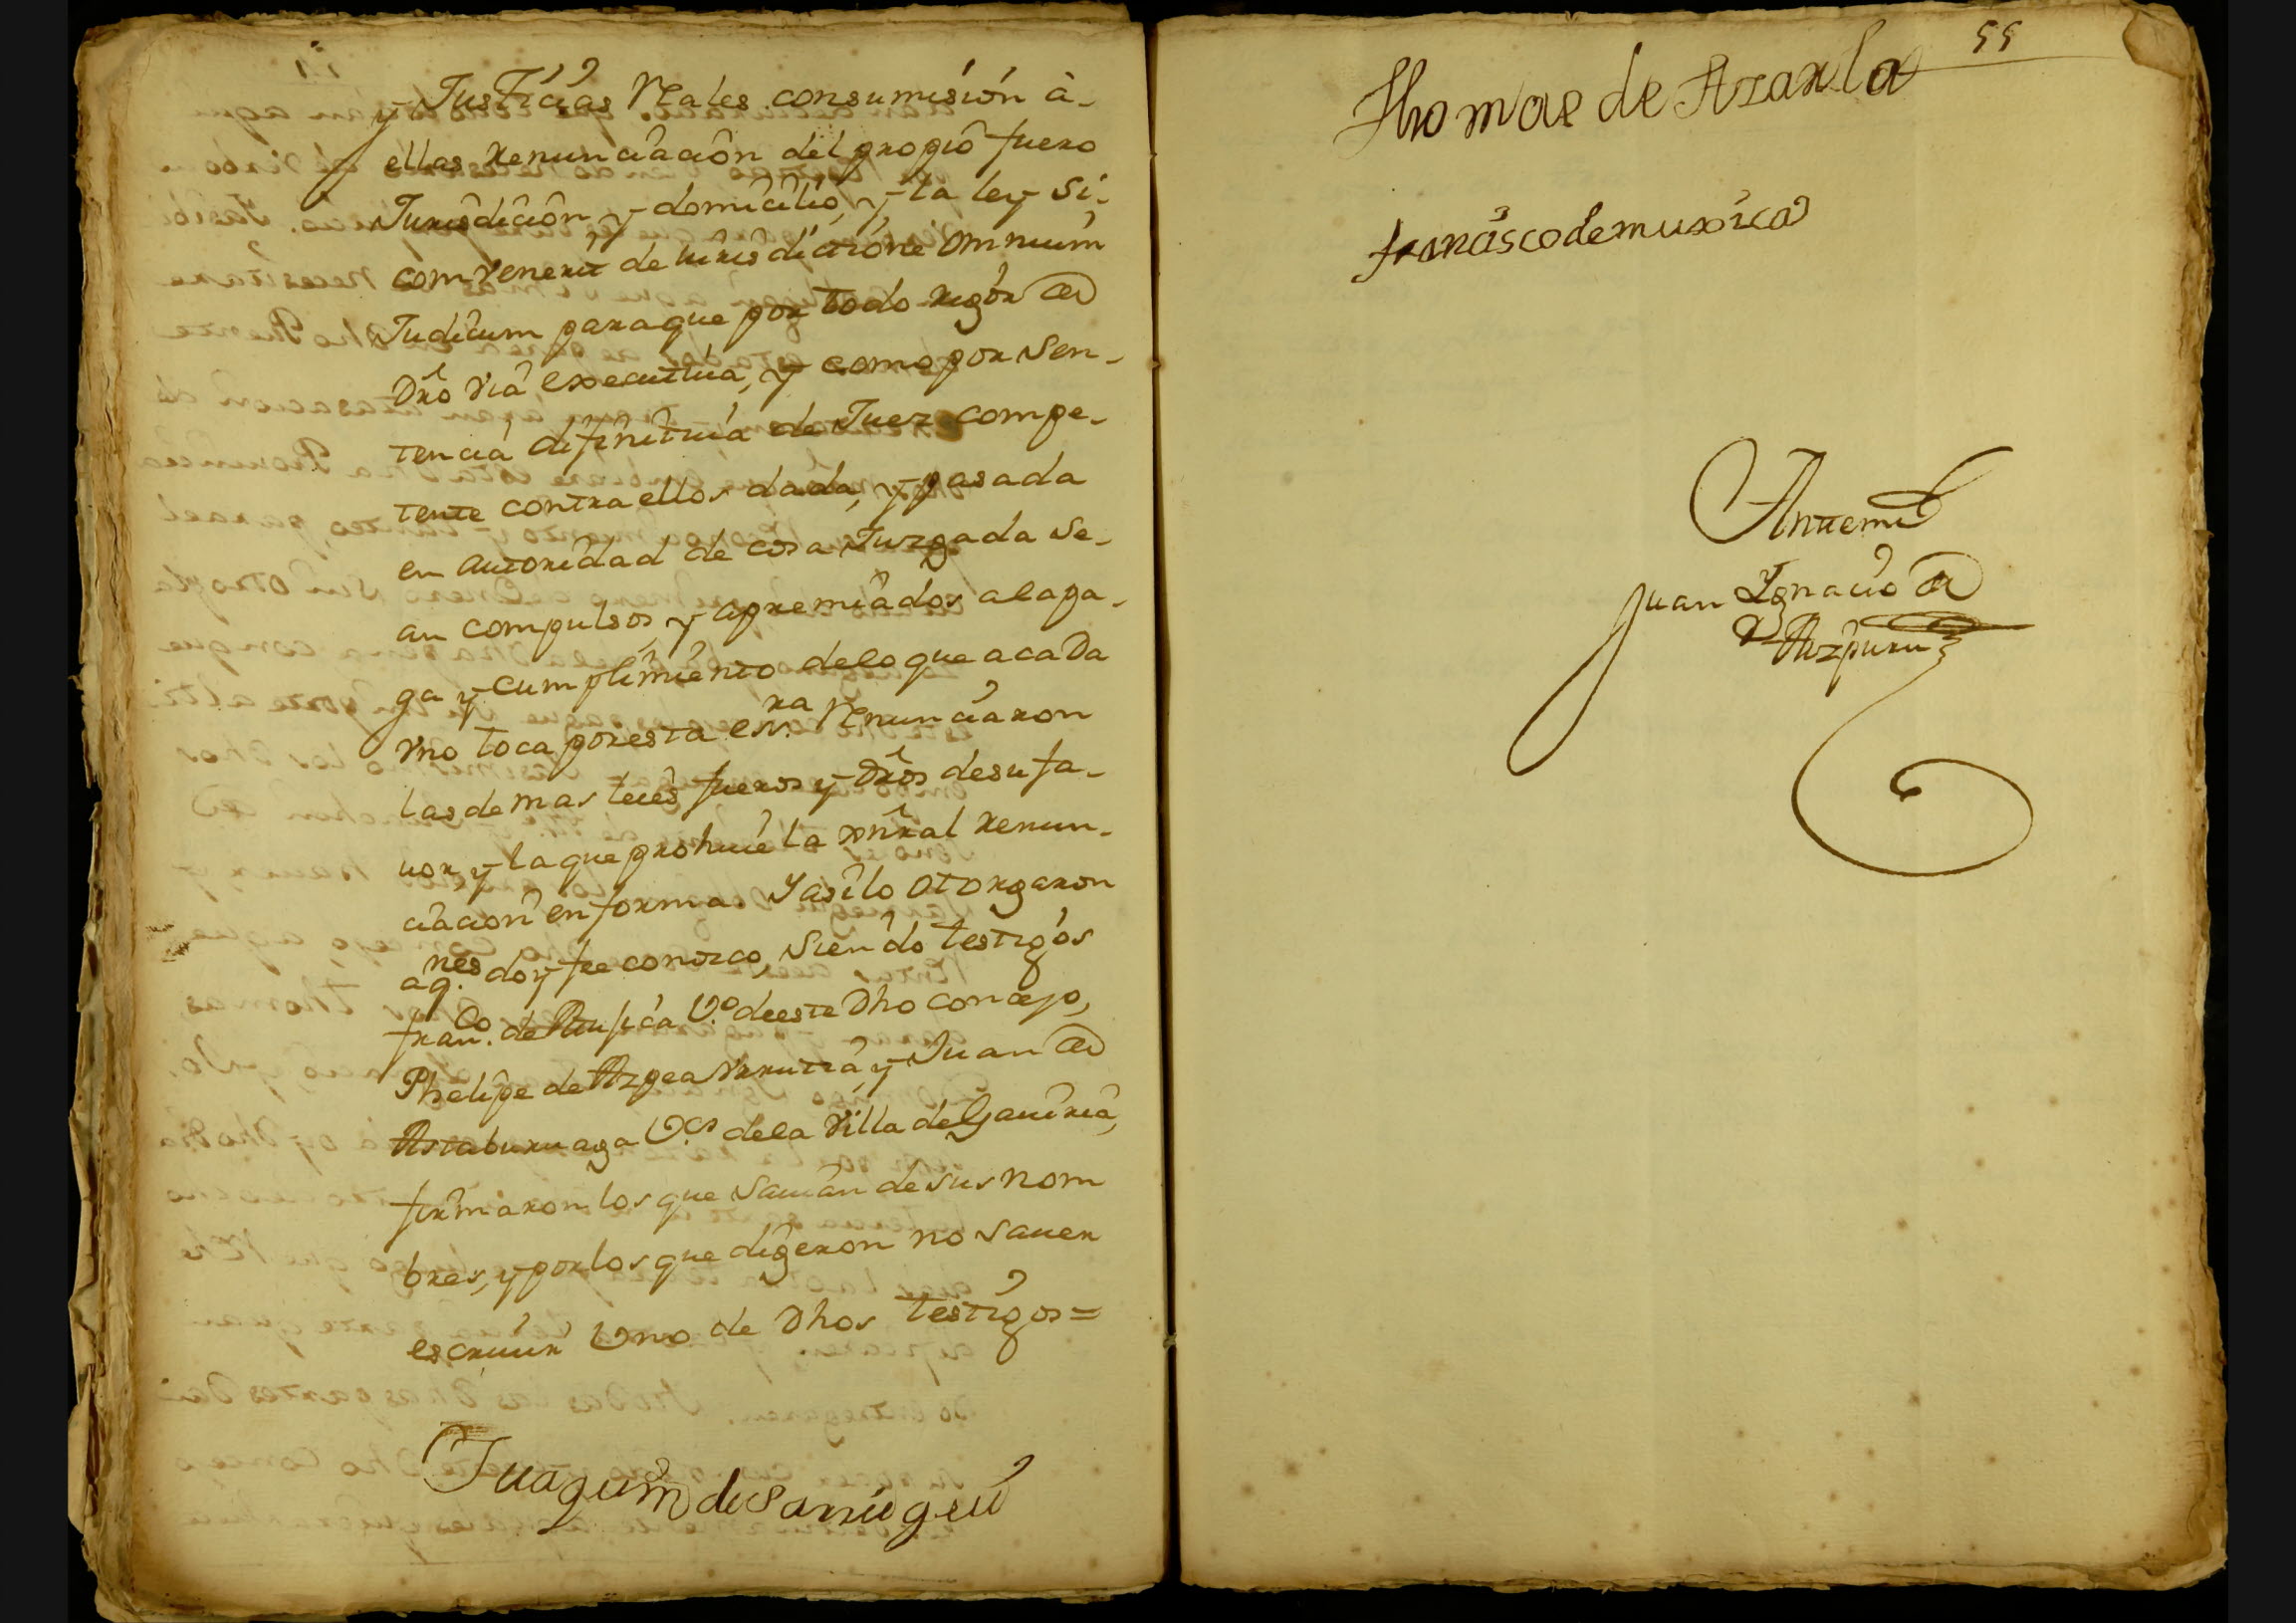 y Justicias Reales consumision à-
ellas renunciacion del propio fuero
Jurisdicion y domicilio, y la ley Si-
combenerit de iurisdictione omnium
Judicum paraque por todo rigor de
dro via executiua, y como por sen-
tencia difinitiua de Juez compe-
tente contra ellos dada, y pasada
en autoridad de cosa Juzgada se-
an compulsos, y apremiados alapa-
ga y cumplimiento delo que acada
vno toca por esta essra Renunciaron
las demas leies fueros y dros desufa-
uor y la que prohiue la gnral renun-
ciacion en forma. Y asi lo otorgaron
aqnes doy fee conozco, siendo testigos
franco. de Muxica Vo. de este dho concejo,
Phelipe de Azpea Vrrutia, y Juan de
Astaburuaga Vos. dela Villa de Gauiria,
firmaron los que sauian de sus nom
bres, y por los que digeron no sauer
escriuir Vno de dhos testigos=
Juaquim de Sarriegui
55
Thomas de Ararla
francisco de muxica
Antemi
Juan Ygnacio de
Aizpuru